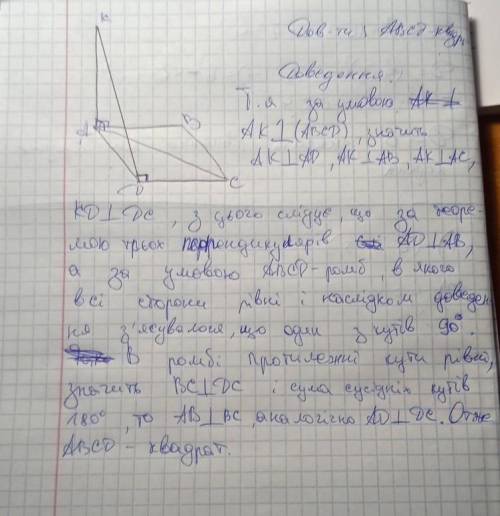 K
Дов-ти: ABCD-квадр
Доведення:
A
B
D
C
Т.я за умовою AK⊥
AK⊥(ABCD), значить
AK⊥AD, AK⊥AB, AK⊥AC,
KD⊥DC, з цього слідує, що за теоре-
мою трьох перпендикулярів AD⊥AB,
а за умовою ABCD-ромб, в якого
всі сторони рівні і наслідком доведен
ня з'ясувалося, що один з кутів 90°.
В ромбі протилежні кути рівні,
значить BC⊥DC і сума сусідніх кутів
180°, то AB⊥BC, аналогічно AD⊥DC. Отже
ABCD – квадрат.